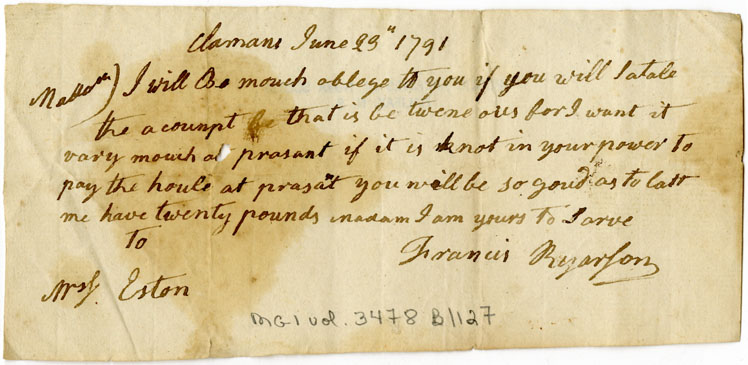 Clamans June 23th 1791
Madam) I will Be mouch oblege to you if you will Satale
the acounpt that is be twene ous for I want it
vary mouch at prasant if it is knot in your power to
pay the houle at prasat you will be so goud as to latt
me have twenty pounds madam I am yours to Sarve
To
Francis Ryarson
Mrs. Eston
MG1 vol. 3478 B/127